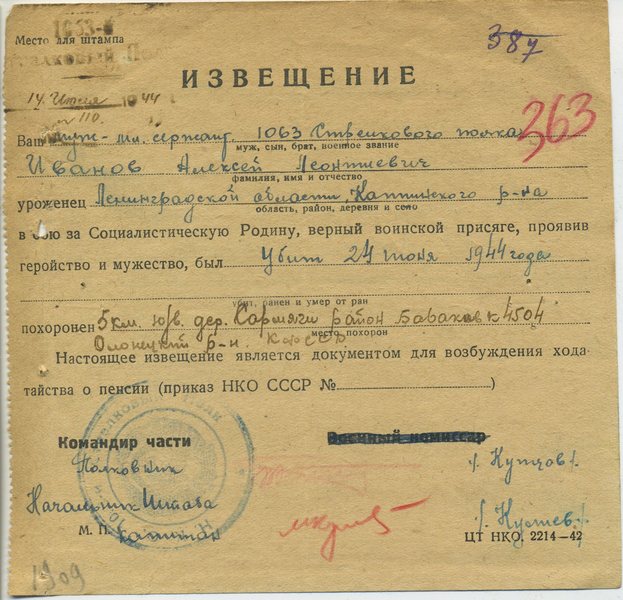 Место для штампа
1063-й
387
ИЗВЕЩЕНИЕ
14 Июля 1944
№ 110.
363
Ваш муж - мл. сержант 1063 Стрелкового полка
муж, сын, брат, военное звание
Иванов Алексей Леонтиевич
фамилия, имя и отчество
уроженец Ленинградской области, Капшинского р-на
область, район, деревня и село
в бою за Социалистическую Родину, верный воинской присяге, проявив
геройство и мужество, был Убит 24 июня 1944 года
убит, ранен и умер от ран
похоронен 5 км. ю/в. дер. Каршяги район Бараков к 4504
место похорон
Олонецкий р-н. КФССР
Настоящее извещение является документом для возбуждения хода-
тайства о пенсии (приказ НКО СССР № )
Командир части
Военный комиссар
Полковник
/. Купцов /.
Начальник Штаба
М. П. Капитан
ЦТ НКО. 2214—42
1909